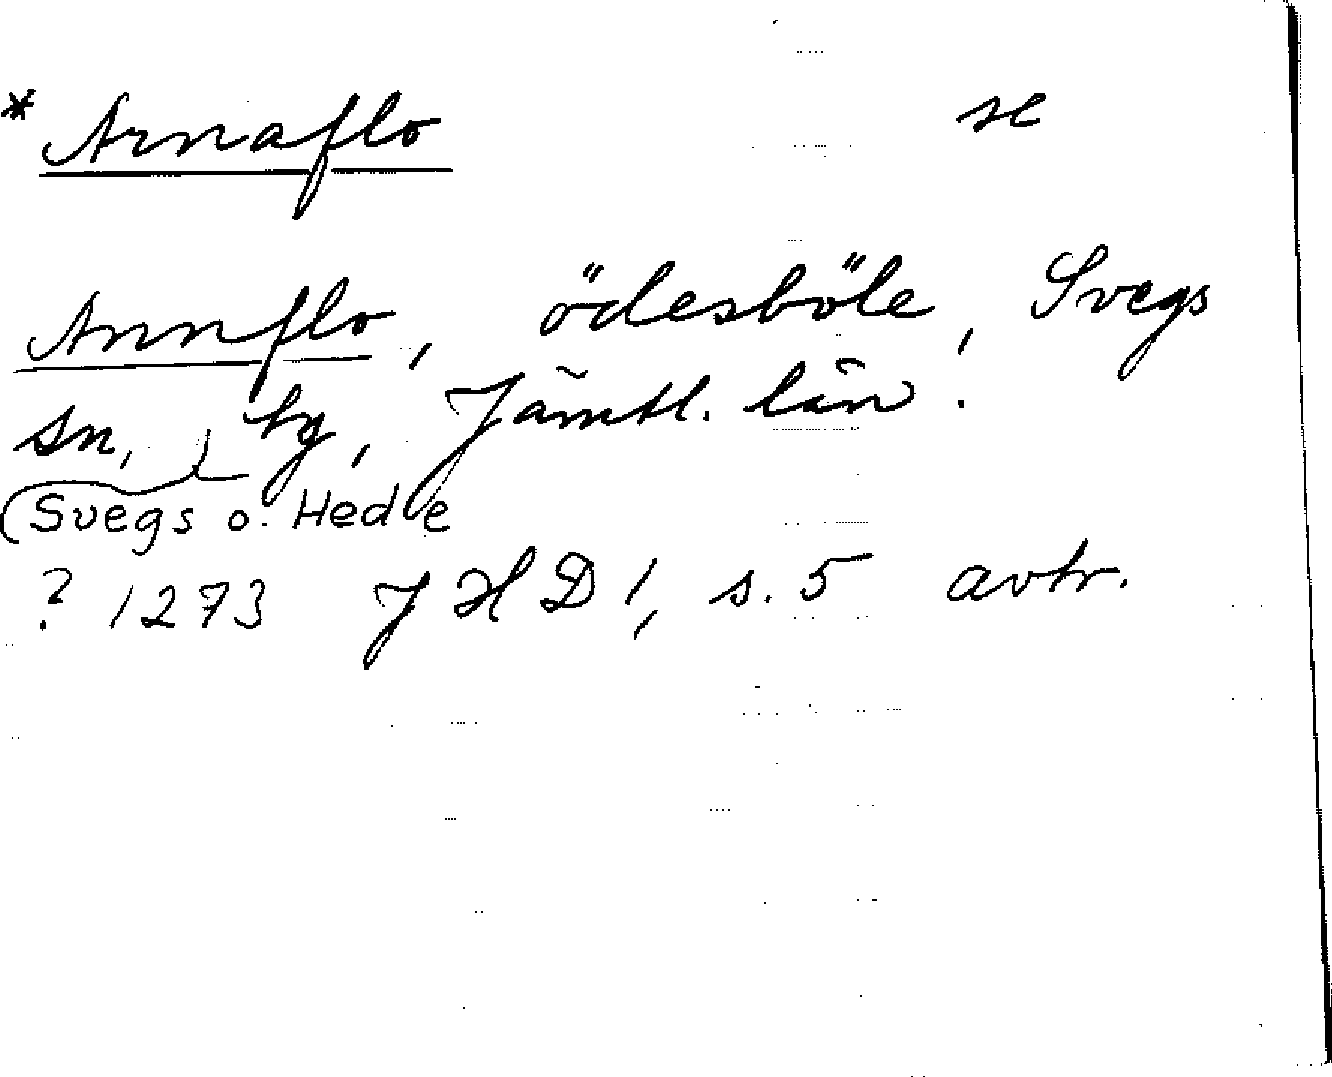 * Arnaflo se
Annflo, ödesböle, Svegs
sn, tg, Jämtl. län.
(Svegs o. Hede
? 1273 JHD 1, s. 5 avtr.